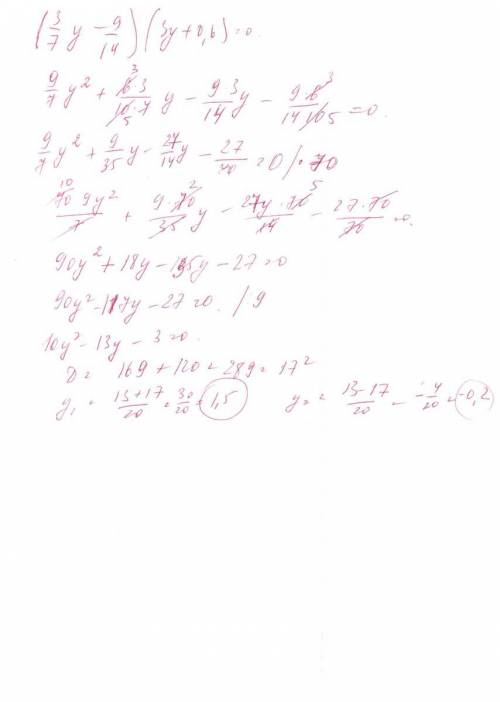 (3/7 y − 9/14)(3y + 0,6) = 0
9/7 y² + 6·3/10·7 y − 9·3/14 y − 9·6/14·10 = 0
9/7 y² + 9/35 y − 27/14 y − 27/70 = 0 /·70
70·9y²/7 + 9·70/35 y − 27y·70/14 − 27·70/70 = 0
90y² + 18y − 135y − 27 = 0
90y² − 117y − 27 = 0 /9
10y² − 13y − 3 = 0
D = 169 + 120 = 289 = 17²
y₁ = 13+17/20 = 30/20 = 1,5 y₂ = 13−17/20 = −4/20 = −0,2